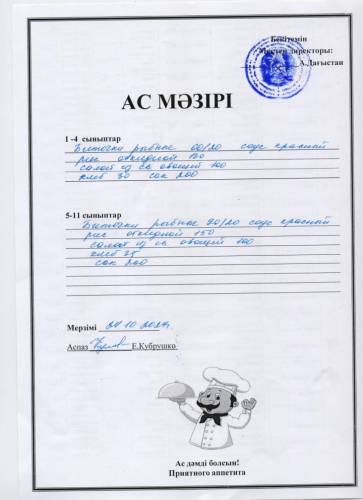 Бекітемін
Мектеп директоры:
А.Дағыстан
АС МӘЗІРІ
1 -4 сыныптар
Биточки рыбные 60/20 соус красный
рис отварной 130
салат из св овощей 100
хлеб 30 сок 200
5-11 сыныптар
Биточки рыбные 90/20 соус красный
рис отварной 150
салат из св овощей 100
хлеб 35
сок 200
Мерзімі 24 10 2024г
Аспаз Е.Кубрушко
Ас дәмді болсын!
Приятного аппетита